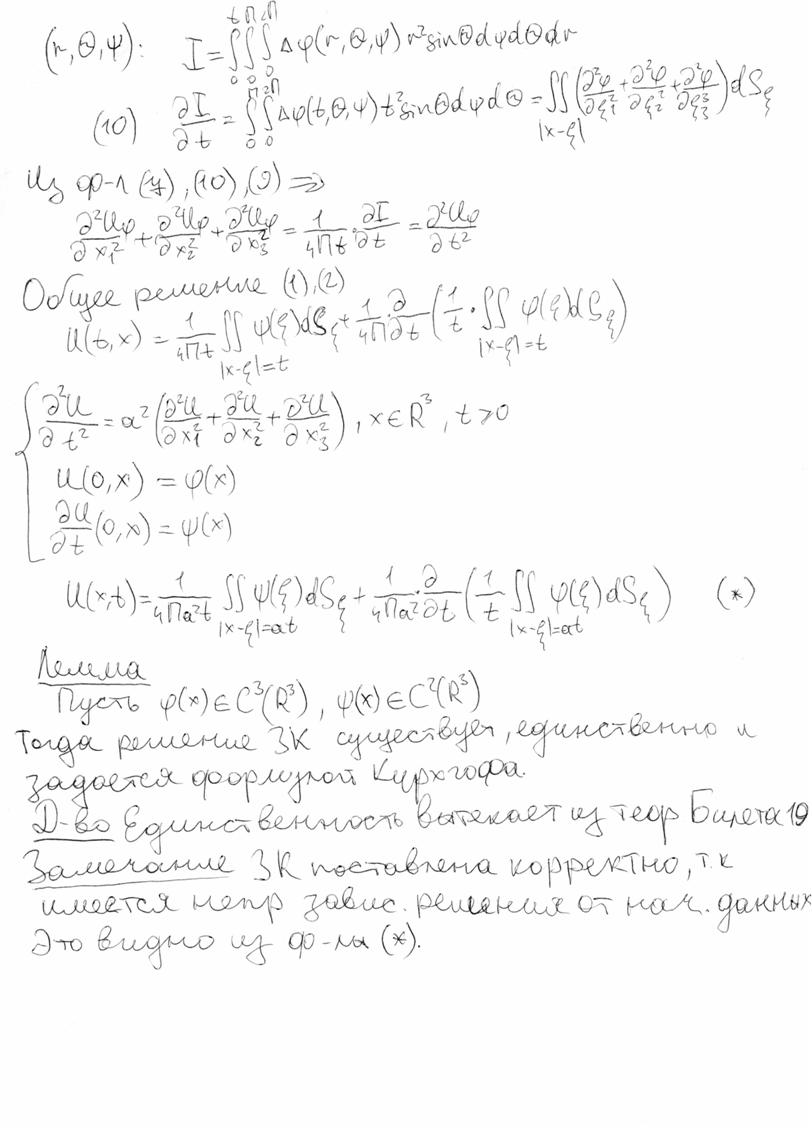 (r, Θ, ψ): I = ∫₀ᵗ∫₀ᴨ∫₀²ᴨ Δφ(r, Θ, ψ) r² sinΘ dφ dΘ dr
(10) ∂I/∂t = ∫₀ᴨ∫₀²ᴨ Δφ(t, Θ, ψ) t² sinΘ dφ dΘ = ∬_{|x-ξ|} (∂²φ/∂ξ₁² + ∂²φ/∂ξ₂² + ∂²φ/∂ξ₃²) dS_ξ
Из ф-л (7), (10), (9) ⇒
∂²Uφ/∂x₁² + ∂²Uφ/∂x₂² + ∂²Uφ/∂x₃² = 1/(4Пt) · ∂I/∂t = ∂²Uφ/∂t²
Общее решение (1), (2)
U(t, x) = 1/(4Пt) ∬_{|x-ξ|=t} ψ(ξ) dS_ξ + 1/(4П) · ∂/∂t (1/t · ∬_{|x-ξ|=t} φ(ξ) dS_ξ)
{ ∂²U/∂t² = a² (∂²U/∂x₁² + ∂²U/∂x₂² + ∂²U/∂x₃²), x ∈ R³, t > 0
U(0, x) = φ(x)
∂U/∂t (0, x) = ψ(x)
U(x, t) = 1/(4Пa²t) ∬_{|x-ξ|=at} ψ(ξ) dS_ξ + 1/(4Пa²) · ∂/∂t (1/t ∬_{|x-ξ|=at} φ(ξ) dS_ξ) (*)
Лемма
Пусть φ(x) ∈ C³(R³), ψ(x) ∈ C²(R³)
Тогда решение ЗК существует, единственно и
задается формулой Кирхгофа.
Д-во Единственность вытекает из теор Билета 19
Замечание ЗК поставлена корректно, т.к
имеется непр завис. решения от нач. данных
Это видно из ф-лы (*).